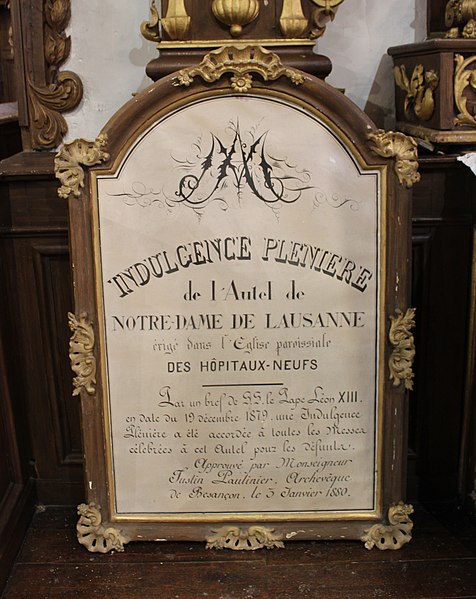 INDULGENCE PLENIERE
de l'Autel de
NOTRE-DAME DE LAUSANNE
érigé dans l'Eglise paroissiale
DES HÔPITAUX-NEUFS
Par un bref de S.S. le Pape Léon XIII.
en date du 19 décembre 1879, une Indulgence
Plénière a été accordée à toutes les Messes
célébrées à cet Autel pour les défunts.
Approuvé par Monseigneur
Justin Paulinier, Archevêque
de Besançon, le 3 Janvier 1880.